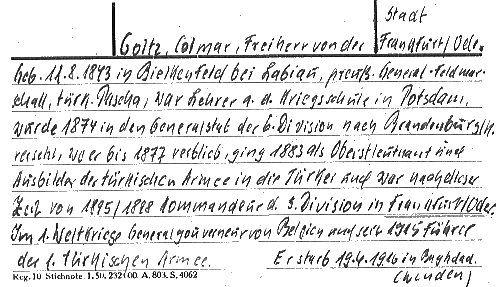 Stadt
Goltz, Colmar, Freiherr von der Frankfurt/Oder
Geb. 12.8.1843 in Bielkenfeld bei Labiau, preuß. General-Feldmar-
schall, türk. Pascha, war Lehrer a. d. Kriegsschule in Potsdam,
wurde 1874 in den Generalstab der 6. Division nach Brandenburg/H.
versetzt, wo er bis 1877 verblieb, ging 1883 als Oberstleutnant und
Ausbilder der türkischen Armee in die Türkei und war nach dieser
Zeit von 1895/1898 Kommandeur d. 5. Division in Frankfurt/Oder.
Im 1. Weltkriege Generalgouverneur von Belgien und seit 1915 Führer
der 1. Türkischen Armee. Er starb 19.4.1916 in Baghdad.
Reg. 10 Stichnote. 1. 50. 232100. A. 803. S. 4062